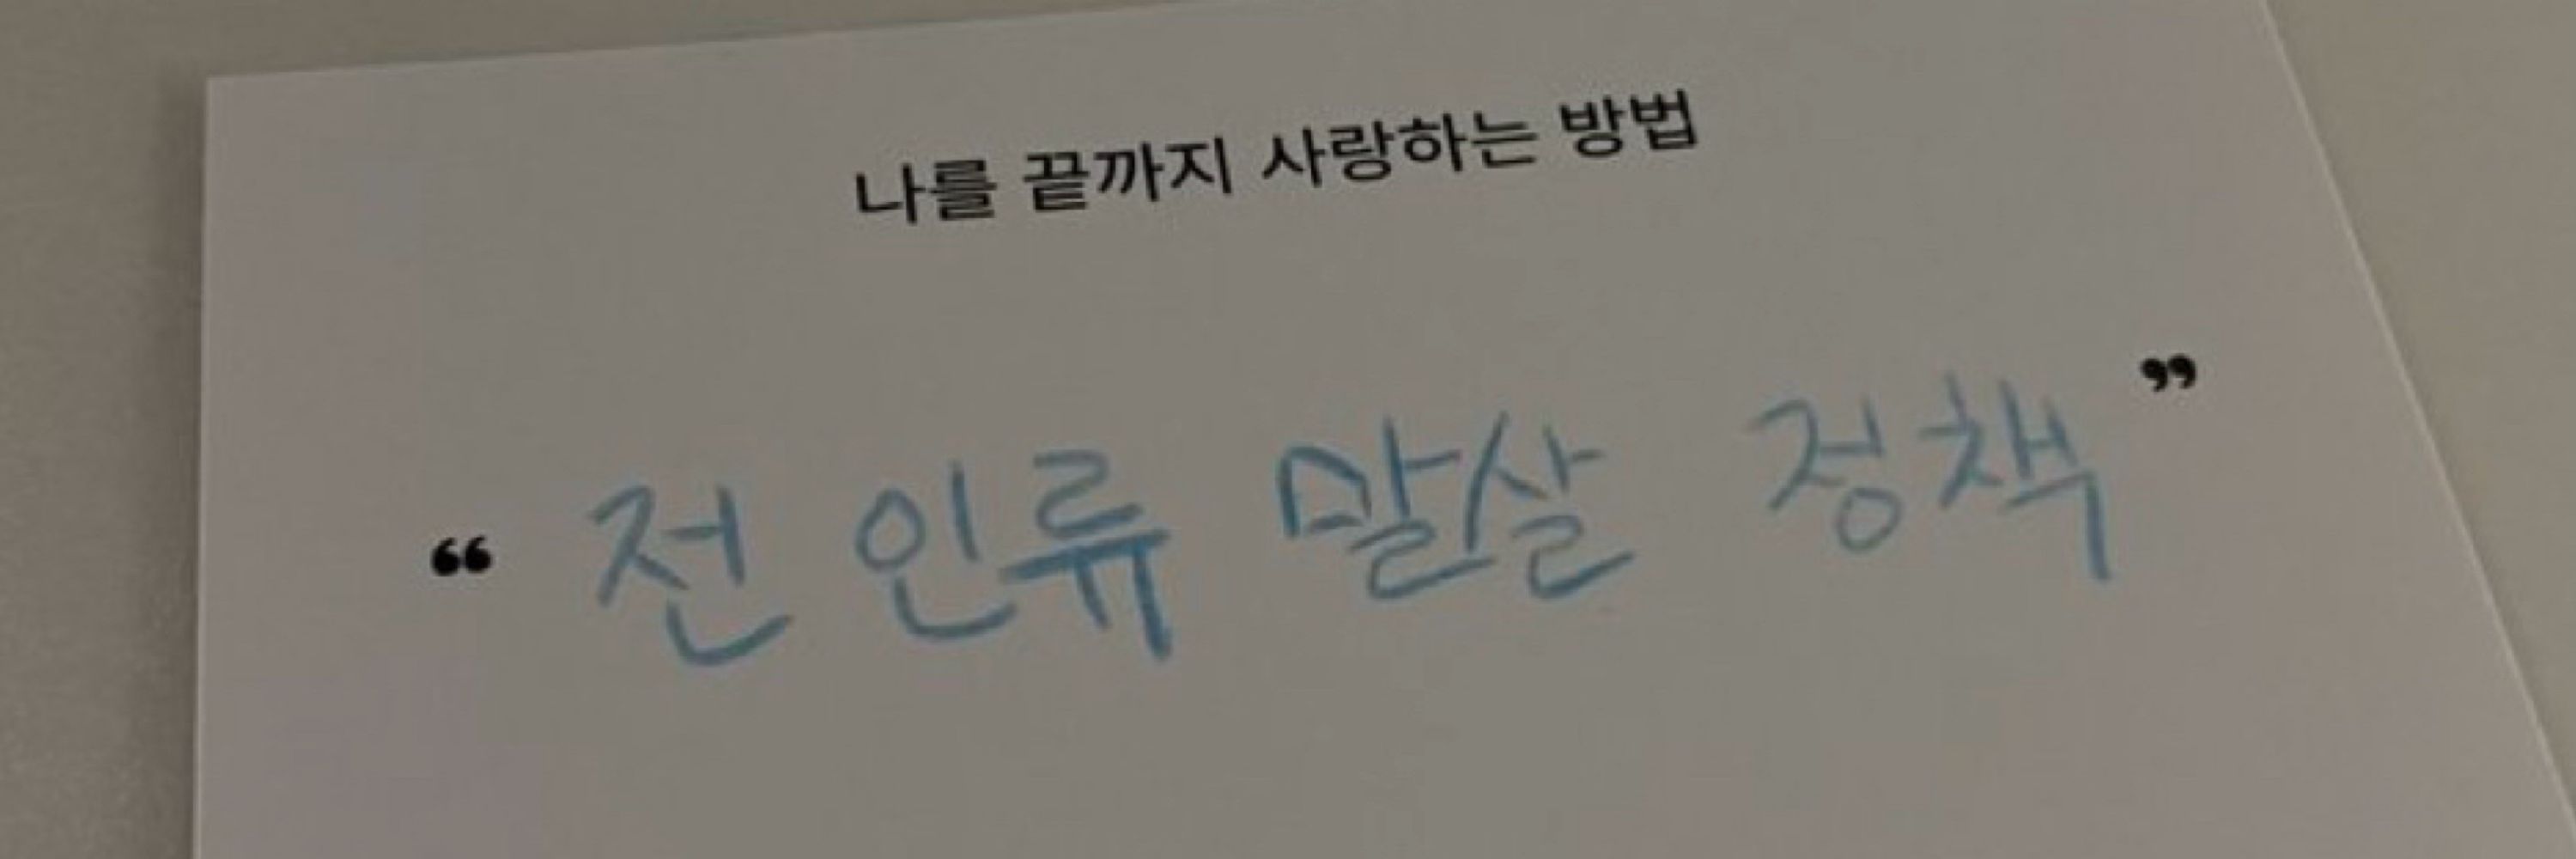 나를 끝까지 사랑하는 방법
“ 전 인류 말살 정책 ”